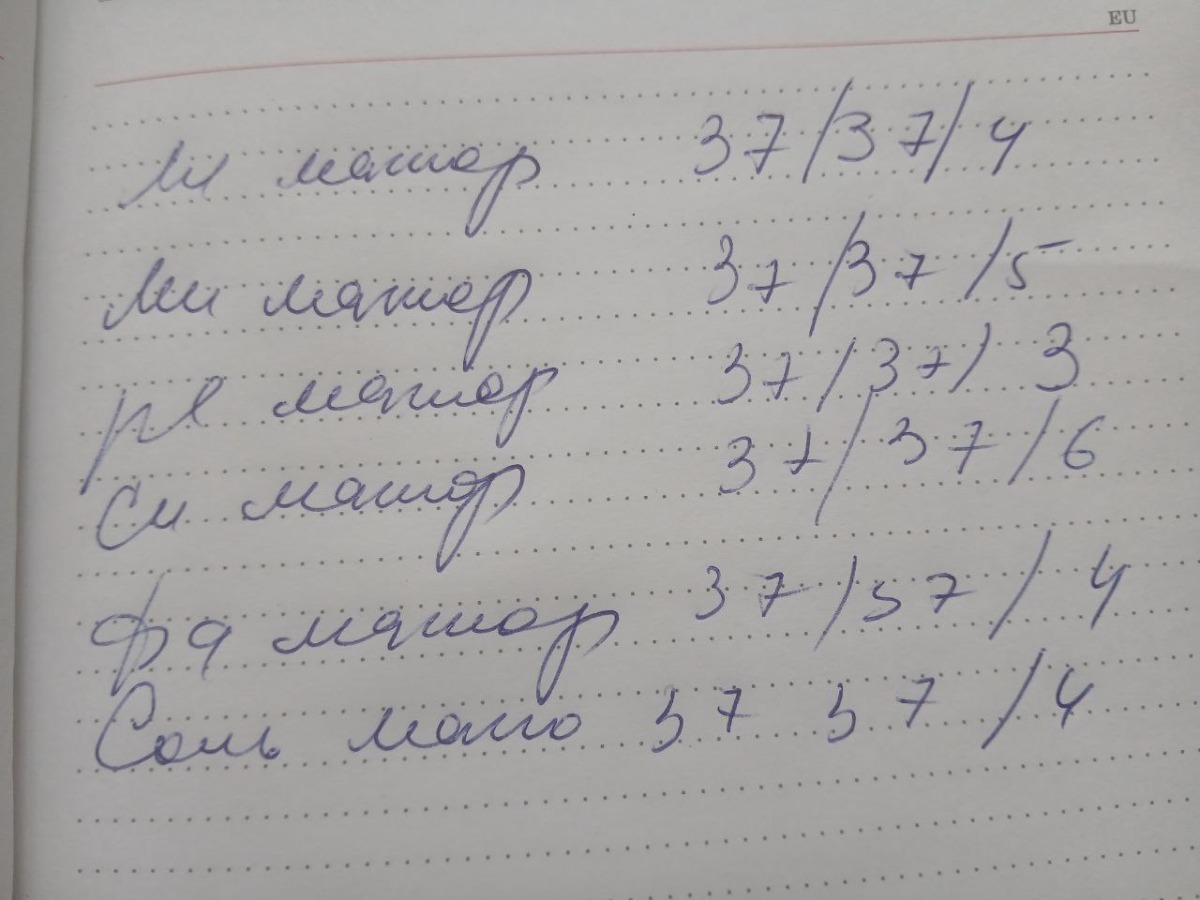 EU
Ми мажор 37/37/4
Ми мажор 37/37/5
ре мажор 37/37/3
си мажор 37/37/6
фа мажор 37/37/4
Соль мажо 37 37/4